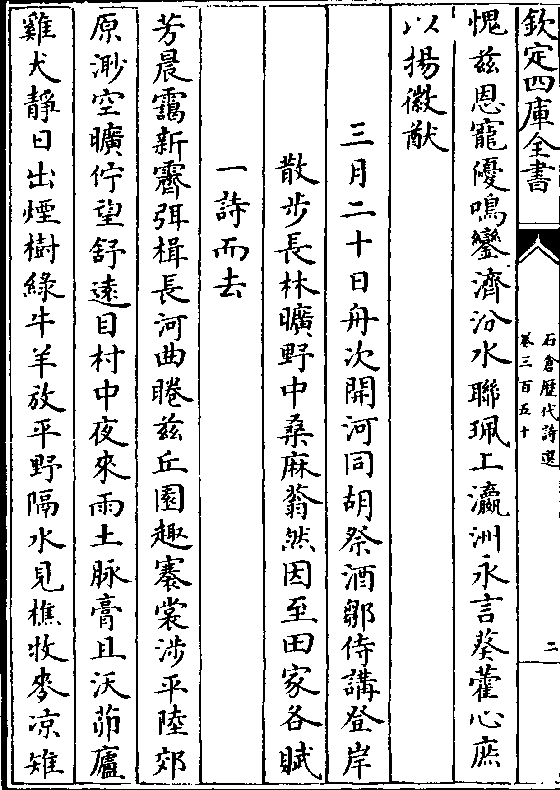 欽定四庫全書
石倉歷代詩選
卷三百五十
二
愧兹恩寵優鳴鑾濟汾水聯珮上瀛洲永言葵藿心庶
以揚徽猷
三月二十日舟次開河同胡祭酒鄒侍講登岸
散步長林曠野中桑麻蓊然因至田家各賦
一詩而去
芳晨靄新霽弭楫長河曲睠兹丘園趣褰裳涉平陸郊
原渺空曠佇望舒遠目村中夜來雨土脉膏且沃茆廬
雞犬靜日出煙樹綠牛羊放平野隔水見樵牧麥凉雉